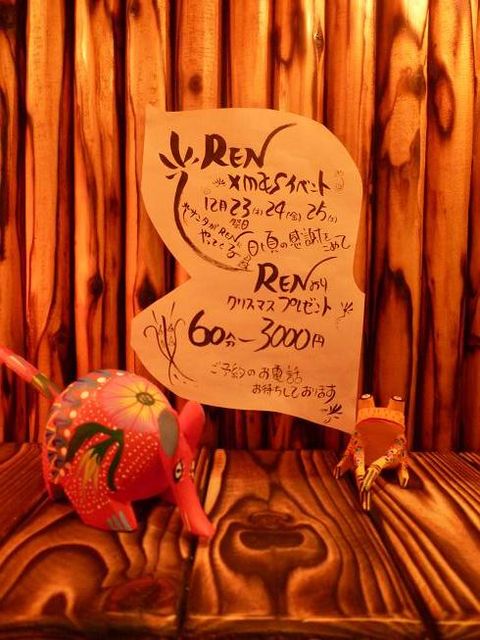 REN
xmasイベント
12月23(木)24(金)25(土)
祭日
サンタがREN
やってくる
日頃の感謝をこめて
RENより
クリスマスプレゼント
60分ー3000円
ご予約のお電話
お待ちしております